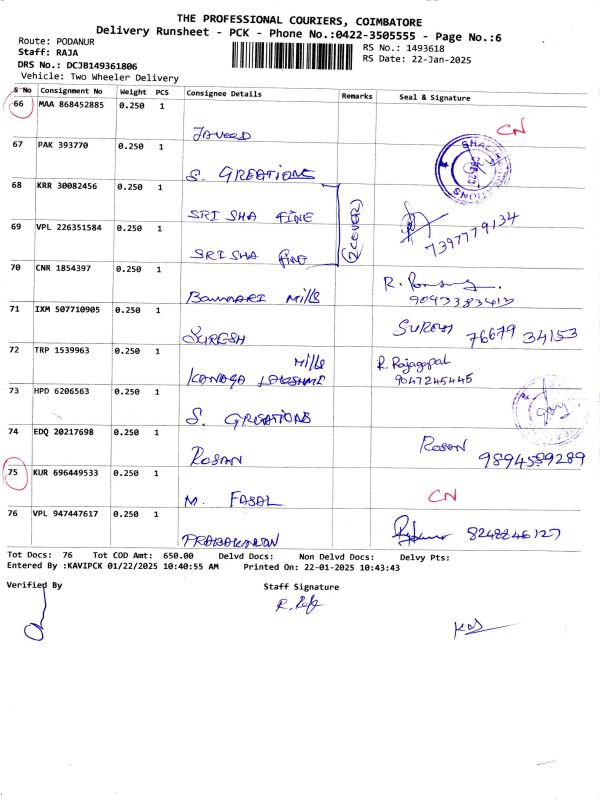 THE PROFESSIONAL COURIERS, COIMBATORE
Delivery Runsheet - PCK - Phone No.:0422-3505555 - Page No.:6
Route: PODANUR
RS No.: 1493618
Staff: RAJA
RS Date: 22-Jan-2025
DRS No.: DCJB149361806
Vehicle: Two Wheeler Delivery
S No Consignment No Weight PCS Consignee Details Remarks Seal & Signature
66 MAA 868452885 0.250 1
JAVEED CN
67 PAK 393770 0.250 1
S. GREATIONS
68 KRR 30082456 0.250 1
SRI SHA FINE
(2 COVER)
7397779134
69 VPL 226351584 0.250 1
SRI SHA FINE
70 CNR 1854397 0.250 1
BANNARI Mills
9093383413
71 IXM 507710905 0.250 1
SURESH SURESH 76679 34153
72 TRP 1539963 0.250 1
KANAGA LAKSHMI Mills
R. Rajagopal
9047245445
73 HPD 6206563 0.250 1
S. GREATIONS
74 EDQ 20217698 0.250 1
ROSAN Rosan 9894589289
75 KUR 696449533 0.250 1
M. FASAL CN
76 VPL 947447617 0.250 1
PRABAKARAN 8248846127
Tot Docs: 76 Tot COD Amt: 650.00 Delvd Docs: Non Delvd Docs: Delvy Pts:
Entered By :KAVIPCK 01/22/2025 10:40:55 AM Printed On: 22-01-2025 10:43:43
Verified By Staff Signature